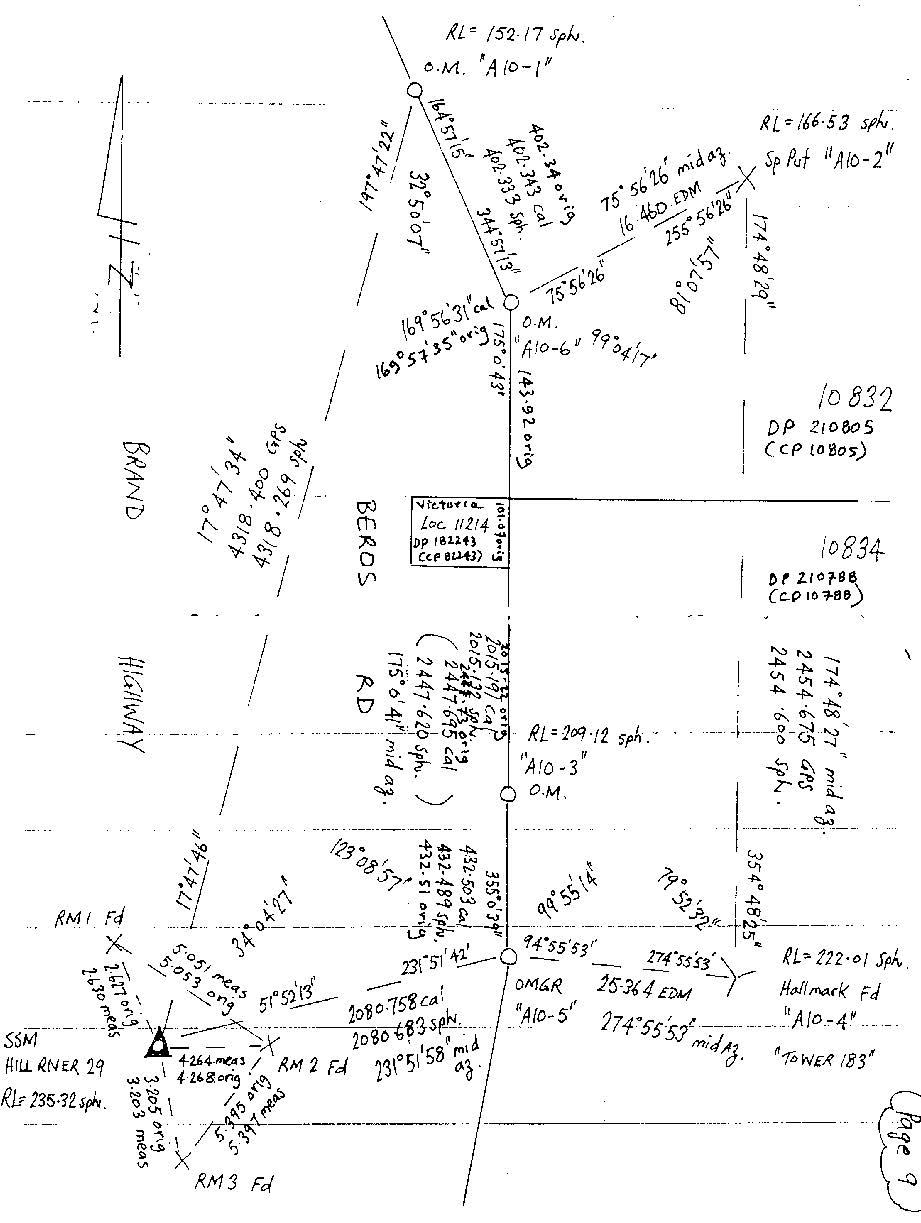 RL= 152.17 sph.
O.M. "A10-1"
RL=166.53 sph.
Sp Put "A10-2"
164°57'5"
197°47'22"
32°50'07"
402.34 orig
402.343 cal
402.333 sph.
344°57'13"
75°56'26" mid az.
16.460 EDM
255°56'26"
75°56'26"
81°07'57"
174°48'29"
169°56'31" cal
169°57'35" orig
O.M.
"A10-6"
99°04'17"
175°0'43"
143.92 orig
10832
DP 210805
(CP 10805)
17°47'34"
4318.400 GPS
4318.269 sph
BRAND
HIGHWAY
BEROS
RD
Victoria
Loc 11214
DP 182243
(CP 82243)
101.07 orig
10834
DP 210788
(CP 10788)
2015.191 cal
2015.132 sph.
2447.695 cal
(2447.620 sph.)
175°0'41" mid az.
RL=209.12 sph.
"A10-3"
O.M.
174°48'27" mid az.
2454.675 GPS
2454.600 sph.
123°08'57"
432.503 cal
432.489 sph.
432.51 orig
355°0'39"
99°55'14"
79°52'32"
354°48'25"
17°47'46"
34°04'27"
RM1 Fd
2.627 orig
2.630 meas
5.051 meas
5.053 orig
51°52'13"
231°51'42"
2080.758 cal
2080.683 sph.
231°51'58" mid
az.
94°55'53"
274°55'53"
OMGR
"A10-5"
25.364 EDM
274°55'53"
mid Az.
RL=222.01 Sph.
Hallmark Fd
"A10-4"
"TOWER 183"
SSM
HILL RIVER 29
RL=235.32 sph.
4.264 meas
4.268 orig
RM2 Fd
3.205 orig
3.203 meas
5.395 orig
5.397 meas
RM3 Fd
Page 9